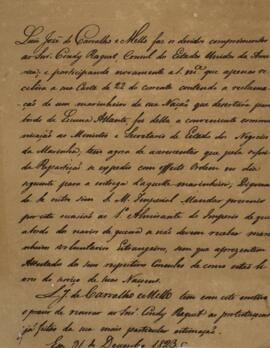 Luiz José de Carvalho e Mello faz os devidos comprimentos
ao Snr. Condy Raguet Consul dos Estados Unidos da Ame-
rica; e participando novamente a S. mce que apenas re-
cebeo a sua Carta de 22 do corrente contendo a reclama-
ção de um marinheiro da sua Nação que desertára para
bordo de Atlante, foi della a conveniente commu-
nicação ao Ministro e Secretario de Estado dos Negocios
da Marinha, tem agora de accrescentar que pela refe-
rida Repartição se expedio com effeito Ordem no dia
para a entrega daquelle marinheiro,
S. M. Imperial Mandar prevenir
por esta occasião ao 1º Almirante do Imperio de que
a bordo dos navios de guerra se não devem receber mari-
nheiros voluntarios Estrangeiros, sem que aprezentem
Attestado dos seus respectivos Consules de como estão li-
vres do serviço de suas Nações.
L. J. de Carvalho e Mello tem com este motivo
o prazer de renovar ao Snr. Condy Raguet as protestações
já feitas da sua mais particular estimação.
Em 31 de Dezembro 1823